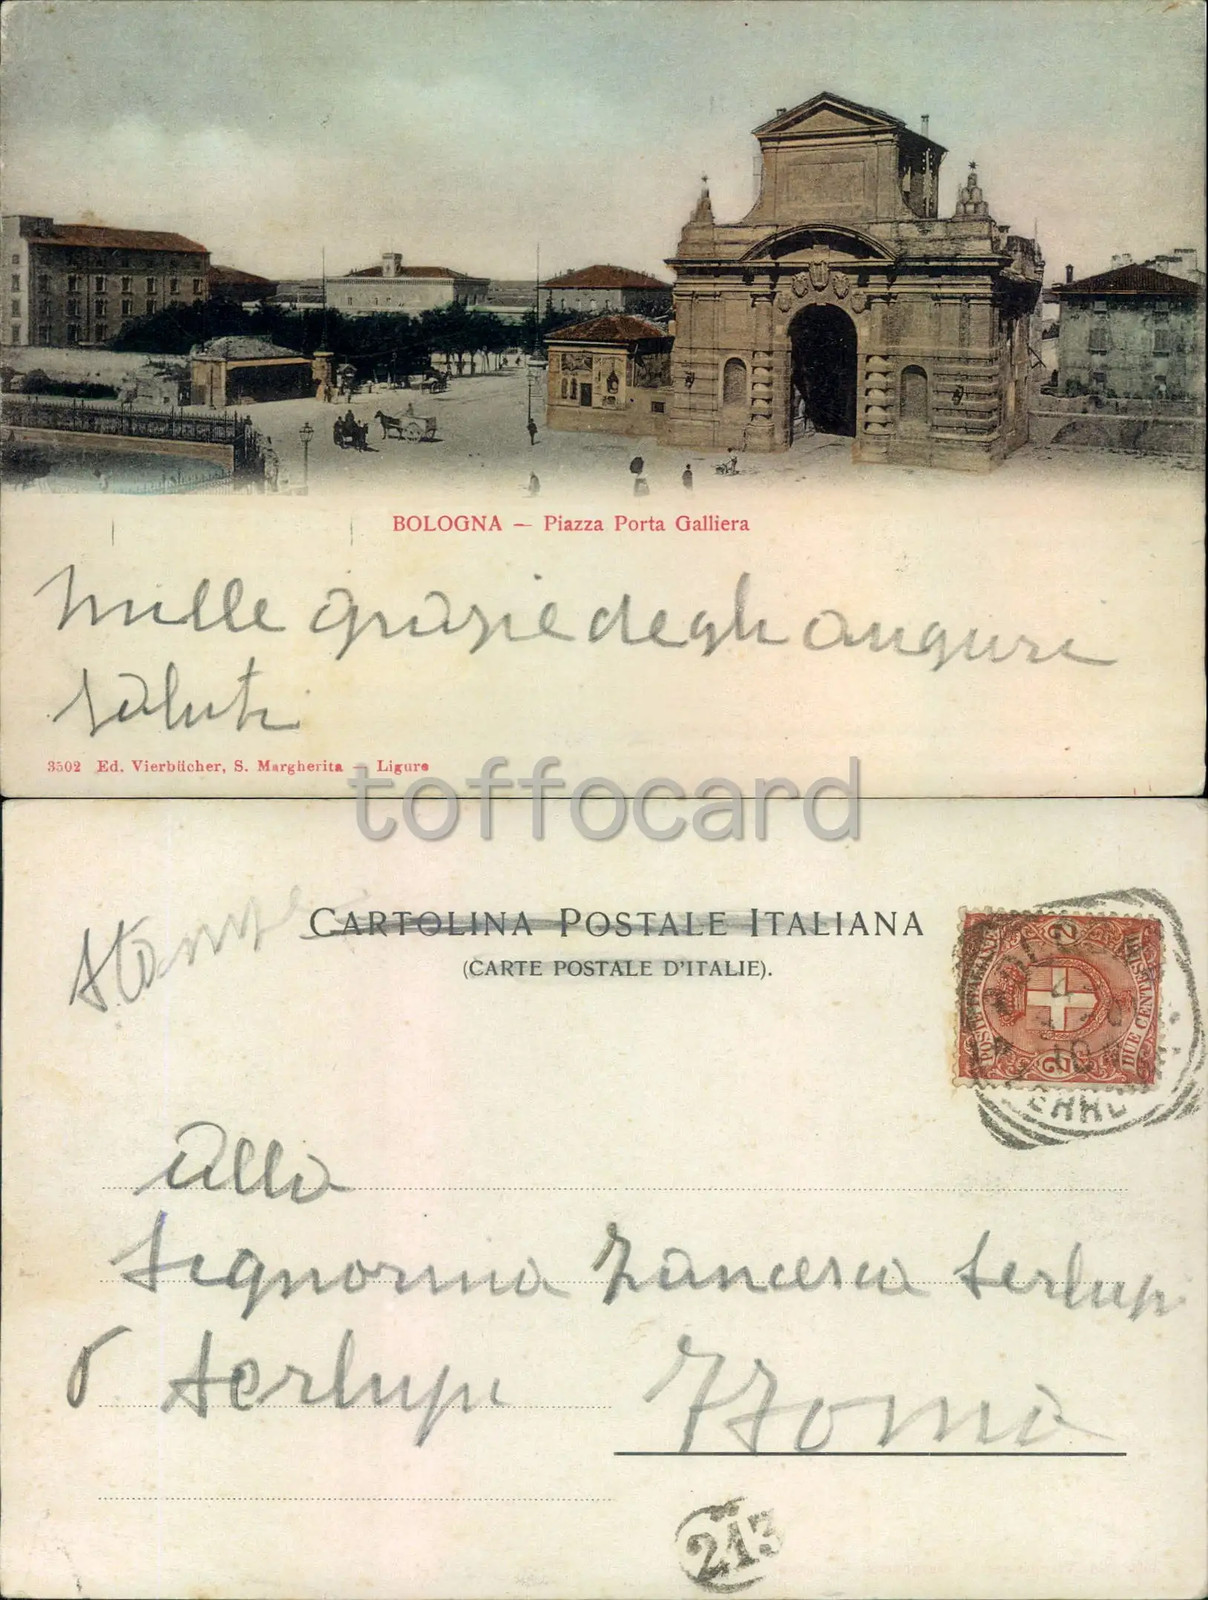 BOLOGNA — Piazza Porta Galliera
Mille grazie degli auguri
saluti
3502 Ed. Vierbücher, S. Margherita — Ligure
toffocard
Stampe
CARTOLINA POSTALE ITALIANA
(CARTE POSTALE D'ITALIE).
POSTE ITALIANE
2
DUE CENTESIMI
2
Alla
Signorina Francesca Serlupi
Serlupi
Roma
213